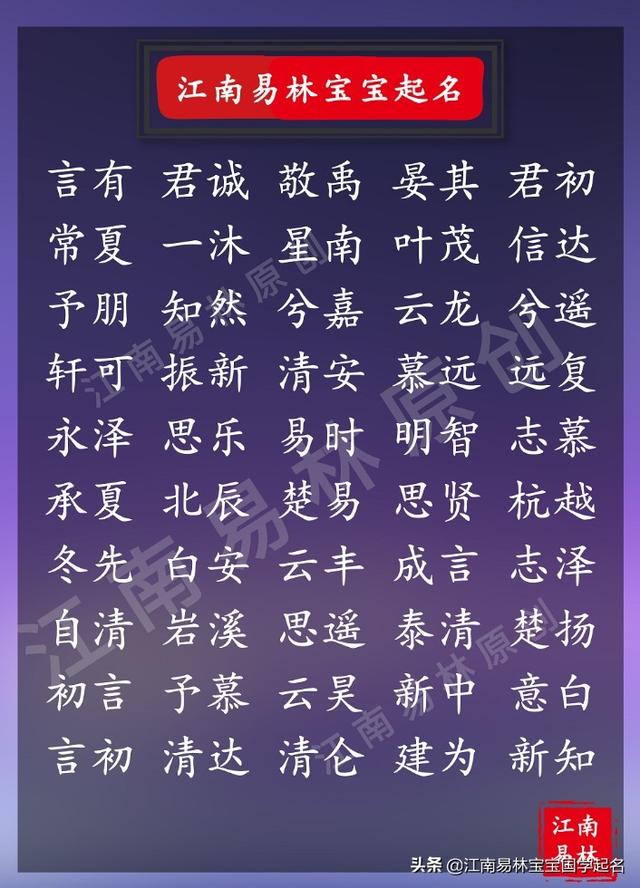 江南易林宝宝起名
言有 君诚 敬禹 晏其 君初
常夏 一沐 星南 叶茂 信达
予朋 知然 兮嘉 云龙 兮遥
轩可 振新 清安 慕远 远复
永泽 思乐 易时 明智 志慕
承夏 北辰 楚易 思贤 杭越
冬先 白安 云丰 成言 志泽
自清 岩溪 思遥 泰清 楚扬
初言 予慕 云昊 新中 意白
言初 清达 清仑 建为 新知
江南易林原创
江南易林原创
江南易林原创
江南
易林
头条 @江南易林宝宝国学起名